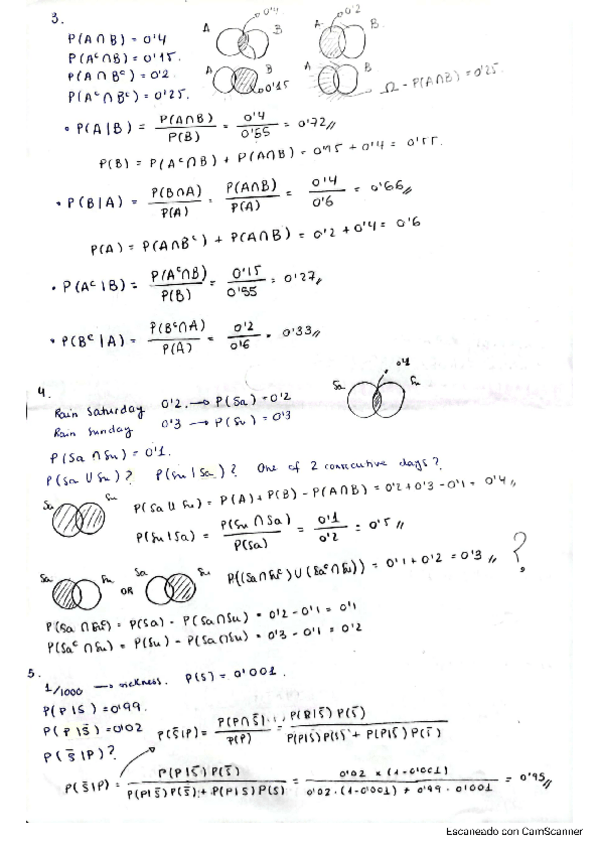 3.
P(A∩B) = 0'4
P(Aᶜ∩B) = 0'15.
P(A∩Bᶜ) = 0'2.
P(Aᶜ∩Bᶜ) = 0'25.
A B 0'4
A B 0'2
A B 0'15
A B Ω - P(A∩B) = 0'25
• P(A|B) = P(A∩B) / P(B) = 0'4 / 0'55 = 0'72 //
P(B) = P(Aᶜ∩B) + P(A∩B) = 0'15 + 0'4 = 0'55.
• P(B|A) = P(B∩A) / P(A) = P(A∩B) / P(A) = 0'4 / 0'6 = 0'66 //
P(A) = P(A∩Bᶜ) + P(A∩B) = 0'2 + 0'4 = 0'6
• P(Aᶜ|B) = P(Aᶜ∩B) / P(B) = 0'15 / 0'55 = 0'27 //
• P(Bᶜ|A) = P(Bᶜ∩A) / P(A) = 0'2 / 0'6 = 0'33 //
4.
Sa Su 0'1
Rain Saturday 0'2. → P(Sa) = 0'2
Rain Sunday 0'3 → P(Su) = 0'3
P(Sa∩Su) = 0'1.
P(Sa∪Su)? P(Su|Sa)? One of 2 consecutive days?
Sa Su P(Sa∪Su) = P(A) + P(B) - P(A∩B) = 0'2 + 0'3 - 0'1 = 0'4 //
P(Su|Sa) = P(Su∩Sa) / P(Sa) = 0'1 / 0'2 = 0'5 //
Sa Su OR Sa Su P((Sa∩Suᶜ)∪(Saᶜ∩Su)) = 0'1 + 0'2 = 0'3 // ?
P(Sa∩Suᶜ) = P(Sa) - P(Sa∩Su) = 0'2 - 0'1 = 0'1
P(Saᶜ∩Su) = P(Su) - P(Sa∩Su) = 0'3 - 0'1 = 0'2
5.
1/1000 → sickness. P(S) = 0'001.
P(P|S) = 0'99.
P(P|S̄) = 0'02
P(S̄|P) = P(P∩S̄) / P(P) = P(P|S̄) P(S̄) / P(P|S) P(S) + P(P|S̄) P(S̄)
P(S̄|P)?
P(S̄|P) = P(P|S̄) P(S̄) / P(P|S̄) P(S̄) + P(P|S) P(S) = 0'02 × (1-0'001) / 0'02 · (1-0'001) + 0'99 · 0'001 = 0'95 //
Escaneado con CamScanner